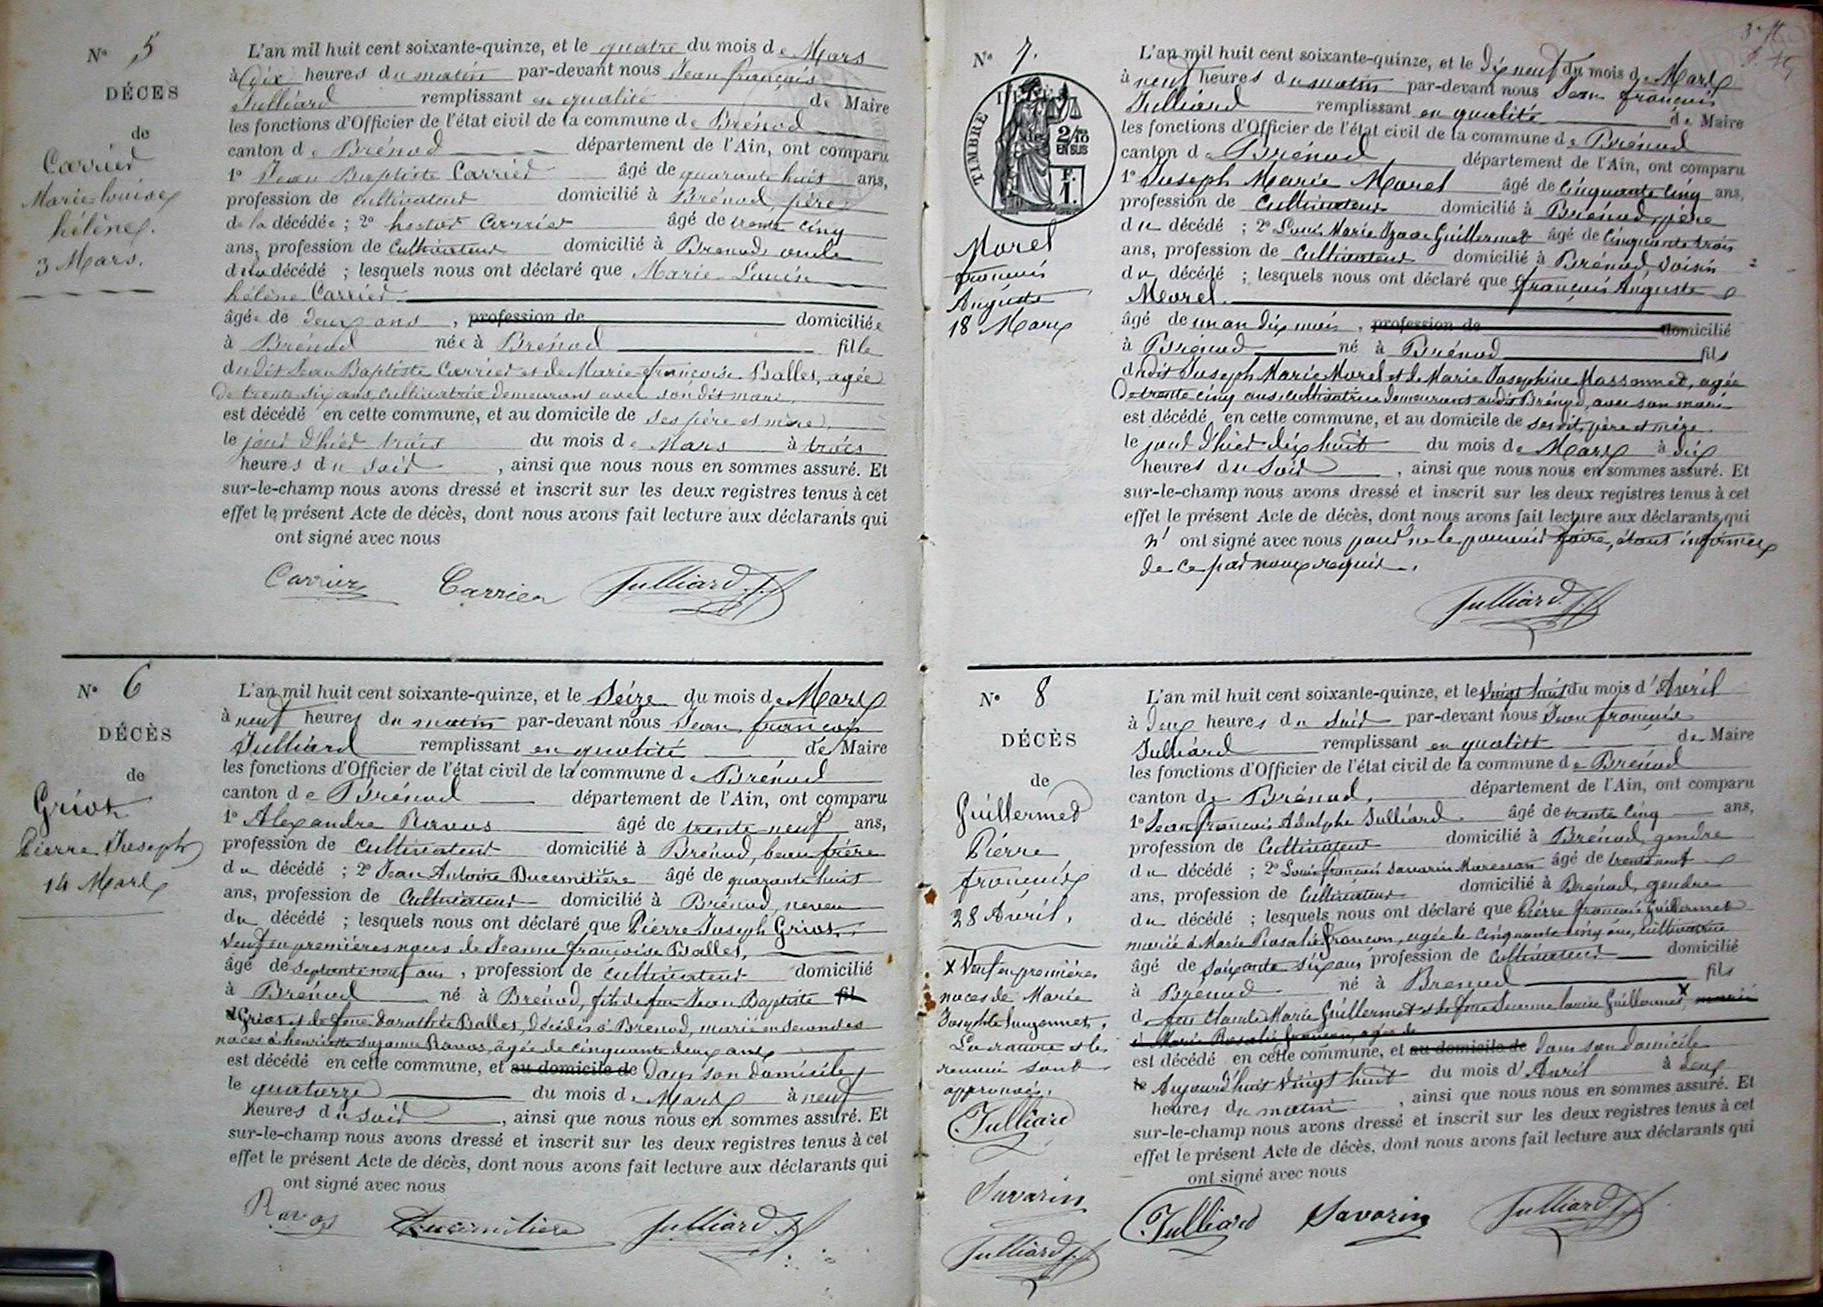 N° 5
DÉCÈS
de
Carrier
Marie Louise
hélène.
3 Mars.
L'an mil huit cent soixante-quinze, et le quatre du mois de Mars
à dix heures du matin par-devant nous Jean françois
Julliard remplissant en qualité de Maire
les fonctions d'Officier de l'état civil de la commune de Brénod
canton de Brénod département de l'Ain, ont comparu
1° Jean Baptiste Carrier âgé de quarante huit ans,
profession de Cultivateur domicilié à Brénod, père
de la décédée ; 2° hector Carrier âgé de trente cinq
ans, profession de Cultivateur domicilié à Brénod, oncle
de la décédé ; lesquels nous ont déclaré que Marie Louise
hélène Carrier
âgée de deux ans , profession de domiciliée
à Brénod née à Brénod fille
dudit Jean Baptiste Carrier et de Marie françoise Balles, agée
De trente six ans, Cultivatrice demeurant avec son dit mari.
est décédé en cette commune, et au domicile de ses père et mère
le jour d'hier trois du mois de Mars à trois
heures du soir , ainsi que nous nous en sommes assuré. Et
sur-le-champ nous avons dressé et inscrit sur les deux registres tenus à cet
effet le présent Acte de décès, dont nous avons fait lecture aux déclarants qui
ont signé avec nous
Carrier Carrier Julliard J. f
N° 6
DÉCÈS
de
Griot
Pierre Joseph
14 Mars
L'an mil huit cent soixante-quinze, et le Seize du mois de Mars
à neuf heures du matin par-devant nous Jean françois
Julliard remplissant en qualité de Maire
les fonctions d'Officier de l'état civil de la commune de Brénod
canton de Brénod département de l'Ain, ont comparu
1° Alexandre Ravos âgé de trente neuf ans,
profession de Cultivateur domicilié à Brénod, beau frère
du décédé ; 2° Jean Antoine Ducernitière âgé de quarante huit
ans, profession de Cultivateur domicilié à Brénod, neveu
du décédé ; lesquels nous ont déclaré que Pierre Joseph Griot,
Veuf en premières noces de Jeanne françoise Balles,
âgé de Septante neuf ans , profession de Cultivateur domicilié
à Brénod né à Brénod, fils de feu Jean Baptiste fil
Griot et de feue Dorothée Balles, Décédés à Brénod, marié en Secondes
noces à henriette Suzanne Ravos, âgée de cinquante deux ans
est décédé en cette commune, et au domicile de dans son domicile
le quatorze du mois de Mars à neuf
heures du soir , ainsi que nous nous en sommes assuré. Et
sur-le-champ nous avons dressé et inscrit sur les deux registres tenus à cet
effet le présent Acte de décès, dont nous avons fait lecture aux déclarants qui
ont signé avec nous
Ravos Ducernitiere Julliard J. f
N° 7.
TIMBRE
2/10
EN SUS
F.
1.
Morel
françois
Auguste
18 Mars
L'an mil huit cent soixante-quinze, et le Dix neuf du mois de Mars
à neuf heures du matin par-devant nous Jean françois
Julliard remplissant en qualité de Maire
les fonctions d'Officier de l'état civil de la commune de Brénod
canton de Brénod département de l'Ain, ont comparu
1° Joseph Marie Morel âgé de Cinquante cinq ans,
profession de Cultivateur domicilié à Brénod, père
du décédé ; 2° Louis Marie Isaac Guillermet âgé de Cinquante trois
ans, profession de Cultivateur domicilié à Brénod, voisin
du décédé ; lesquels nous ont déclaré que françois Auguste
Morel.
âgé de un an dix mois , profession de domicilié
à Brénod né à Brénod fils
dudit Joseph Marie Morel et de Marie Josephine Massonnet, agée
De trente cinq ans, Cultivatrice demeurant audit Brénod, avec son mari
est décédé en cette commune, et au domicile de ses dit père et mère
le jour d'hier dix huit du mois de Mars à dix
heures du Soir , ainsi que nous nous en sommes assuré. Et
sur-le-champ nous avons dressé et inscrit sur les deux registres tenus à cet
effet le présent Acte de décès, dont nous avons fait lecture aux déclarants qui
n' ont signé avec nous pour ne le pouvoir faire, étant informés
de ce par nous requis.
Julliard J. f
N° 8
DÉCÈS
de
Guillermet
Pierre
françois
28 Avril.
X Veuf en premières
noces de Marie
Josephte Suzonnet.
La rature et le
renvoi sont
approuvés.
Julliard
Savarin
Julliard J. f
L'an mil huit cent soixante-quinze, et le Vingt huit du mois d'Avril
à deux heures du soir par-devant nous Jean françois
Julliard remplissant en qualité de Maire
les fonctions d'Officier de l'état civil de la commune de Brénod
canton de Brénod, département de l'Ain, ont comparu
1° Jean françois Adolphe Julliard âgé de trente cinq ans,
profession de Cultivateur domicilié à Brénod, gendre
du décédé ; 2° Louis françois Savarin âgé de trente neuf
ans, profession de Cultivateur domicilié à Brénod, gendre
du décédé ; lesquels nous ont déclaré que Pierre françois Guillermet
marié à Marie Rosalie françon, agée de Cinquante cinq ans, cultivatrice
âgé de Soixante six ans profession de Cultivateur domicilié
à Brénod né à Brénod fils
de feu Claude Marie Guillermet et de feue Jeanne louise Guillermet, X marié
à Marie Rosalie françon, agée de
est décédé en cette commune, et au domicile de dans son domicile
le Aujourd'huit Vingt huit du mois d'Avril à deux
heures du matin , ainsi que nous nous en sommes assuré. Et
sur-le-champ nous avons dressé et inscrit sur les deux registres tenus à cet
effet le présent Acte de décès, dont nous avons fait lecture aux déclarants qui
ont signé avec nous
Julliard Savarin Julliard J. f